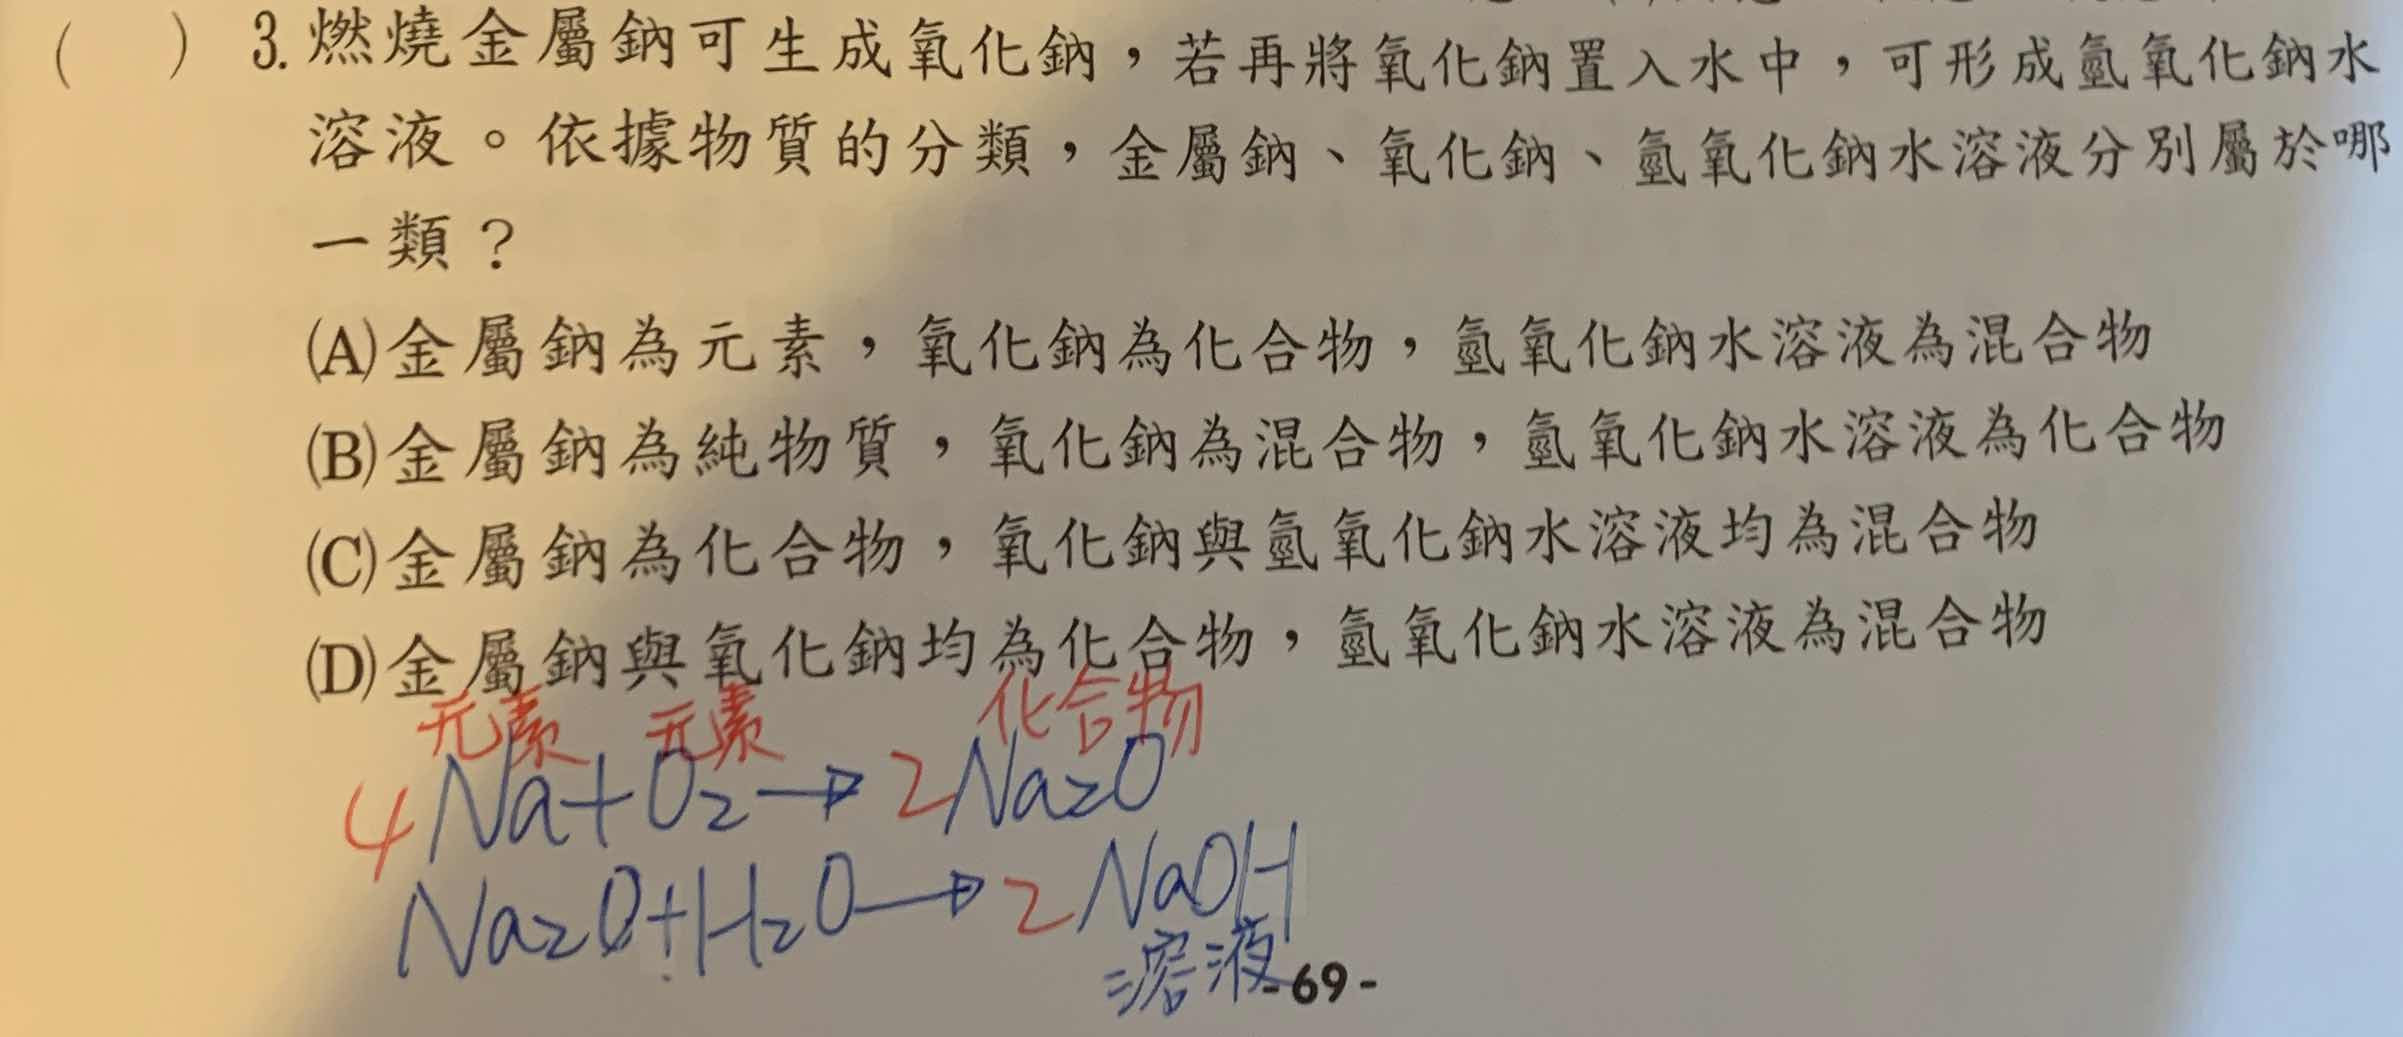 (　) 3. 燃燒金屬鈉可生成氧化鈉，若再將氧化鈉置入水中，可形成氫氧化鈉水
溶液。依據物質的分類，金屬鈉、氧化鈉、氫氧化鈉水溶液分別屬於哪
一類？
(A)金屬鈉為元素，氧化鈉為化合物，氫氧化鈉水溶液為混合物
(B)金屬鈉為純物質，氧化鈉為混合物，氫氧化鈉水溶液為化合物
(C)金屬鈉為化合物，氧化鈉與氫氧化鈉水溶液均為混合物
(D)金屬鈉與氧化鈉均為化合物，氫氧化鈉水溶液為混合物
元素 元素 化合物
4Na+O2→2Na2O
Na2O+H2O→2NaOH
溶液
-69-